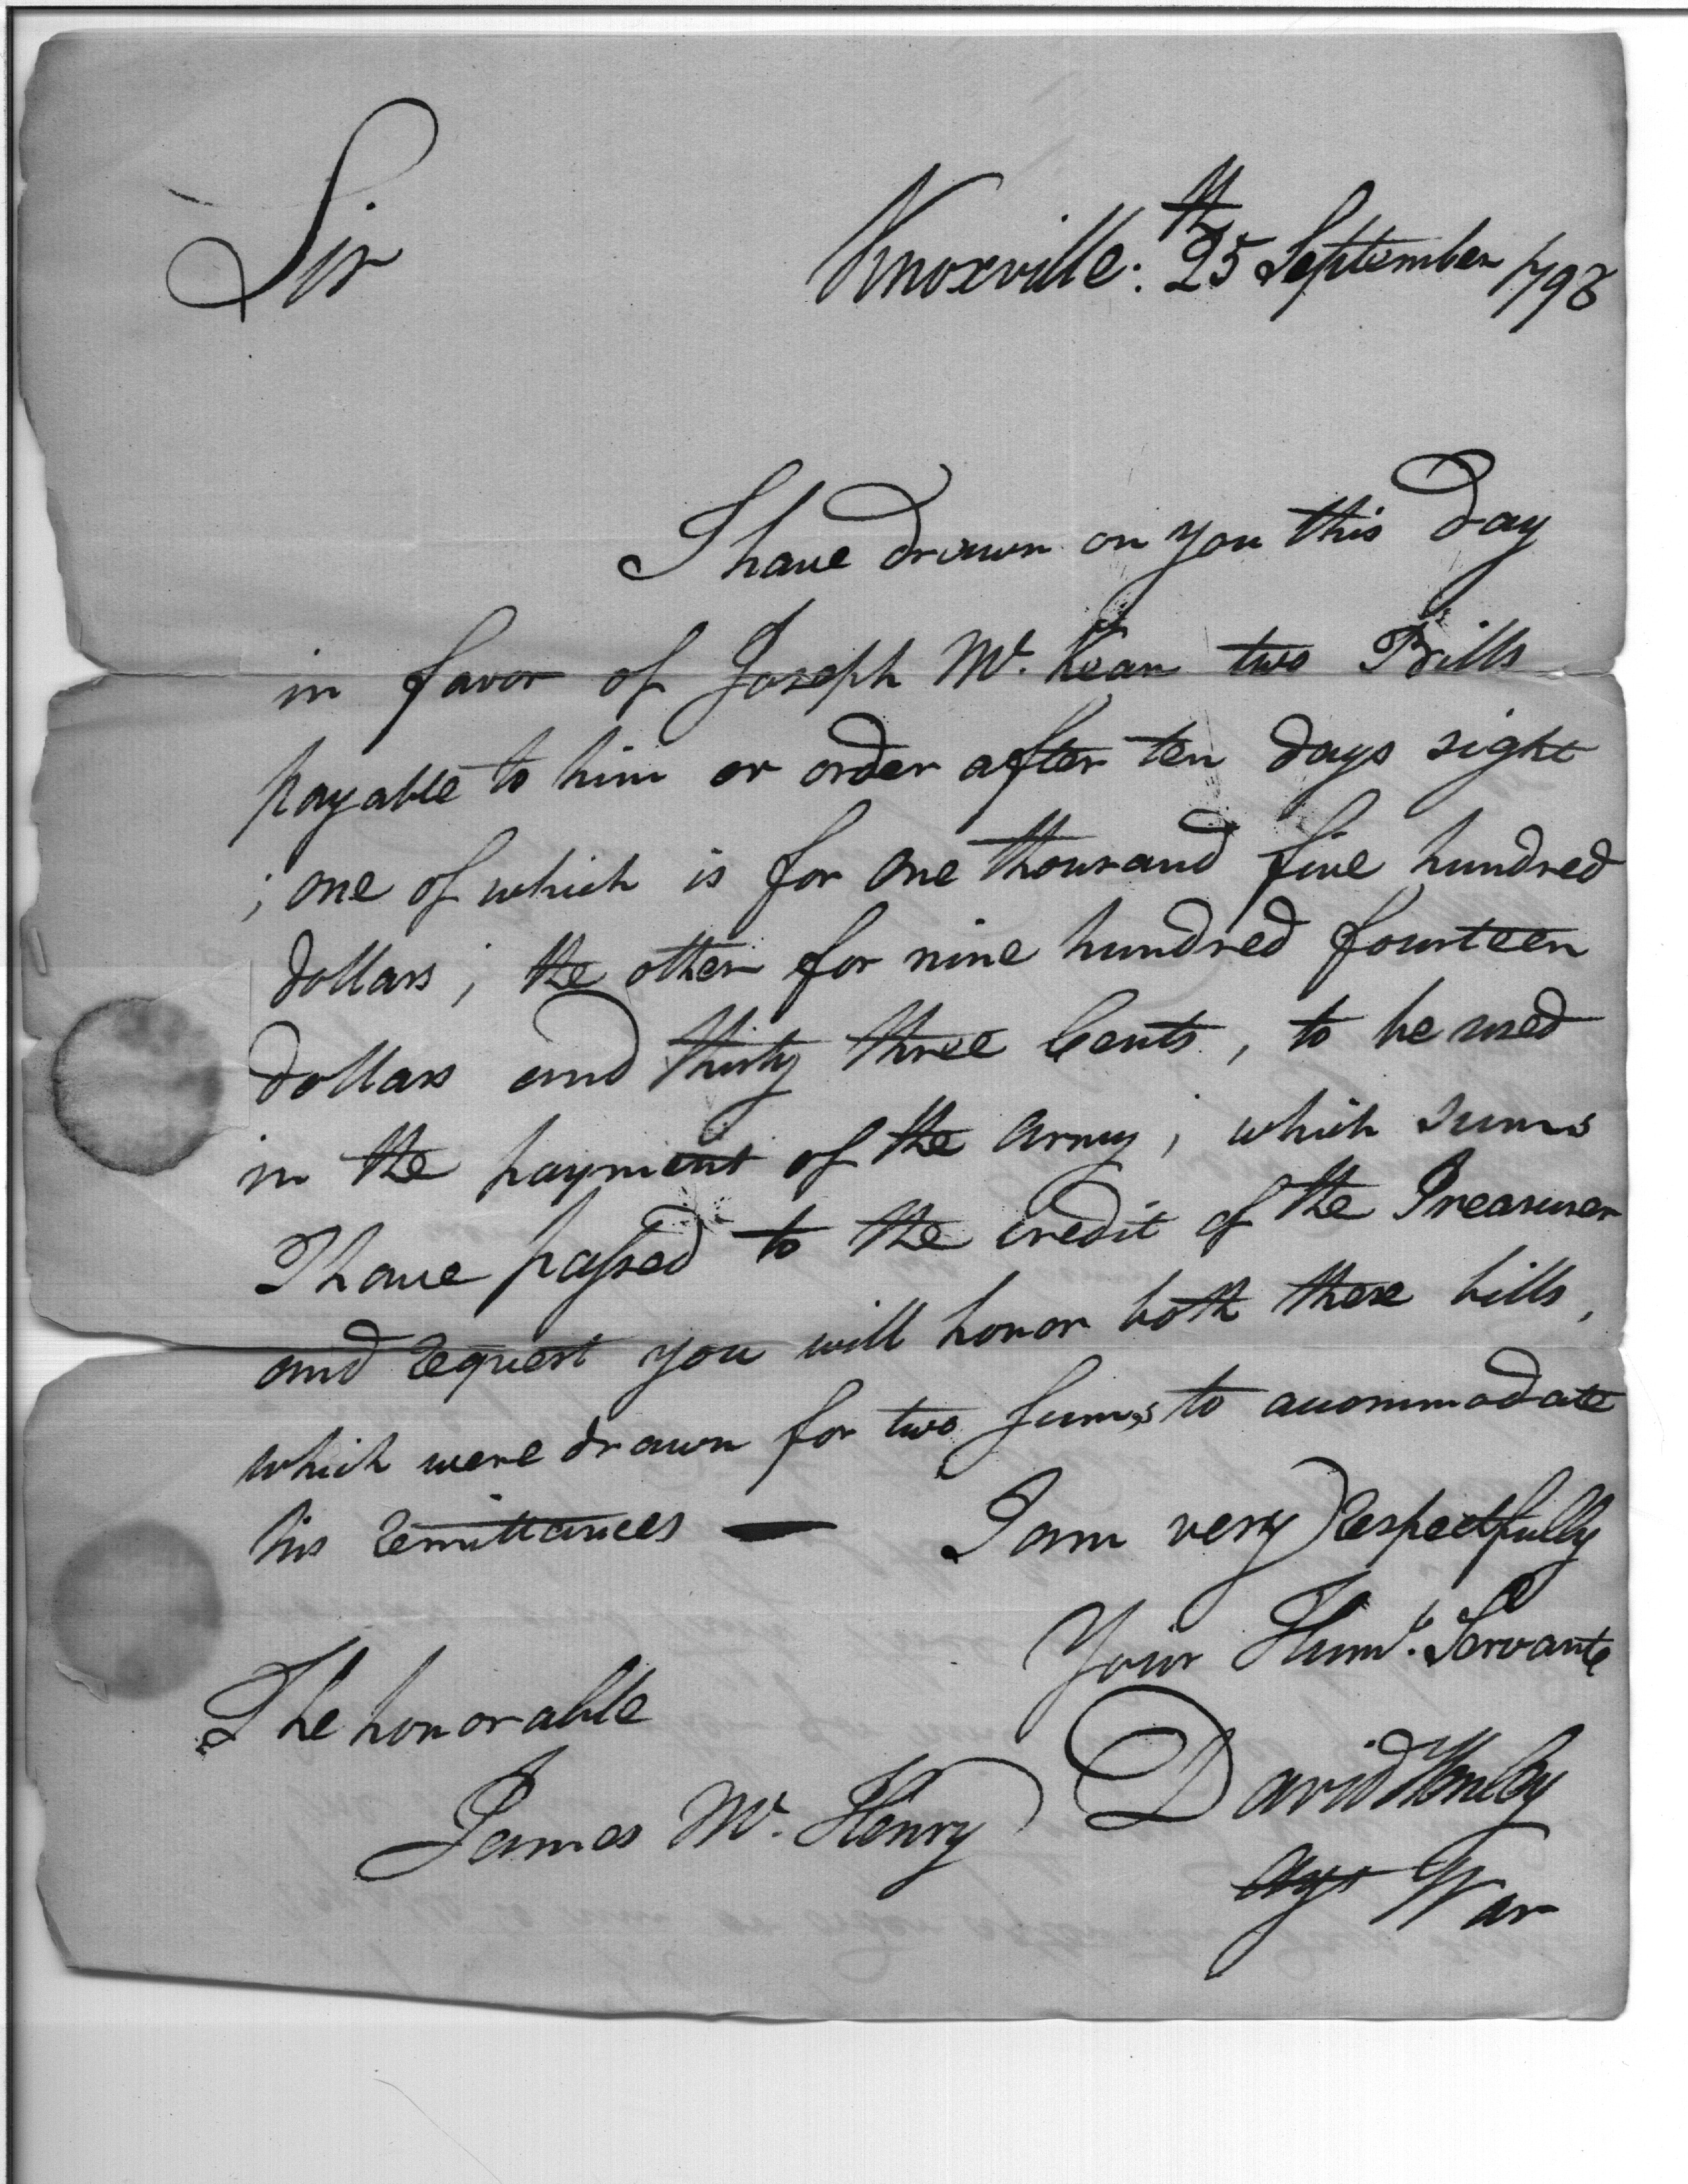 Sir
Knoxville. 25th September 1798
I have drawn on you this day
in favor of Joseph Mc. Kean two Bills
payable to him or order after ten days sight
; one of which is for one thousand five hundred
dollars ; the other for nine hundred fourteen
dollars and thirty three Cents, to be used
in the payment of the army ; which sums
I have passed to the credit of the Treasurer
and request you will honor both these bills,
which were drawn for two sums, to accommodate
his remittances — I am very respectfully
Your Humb. Servant
The honorable
James Mc. Henry
David Henley
Agt War